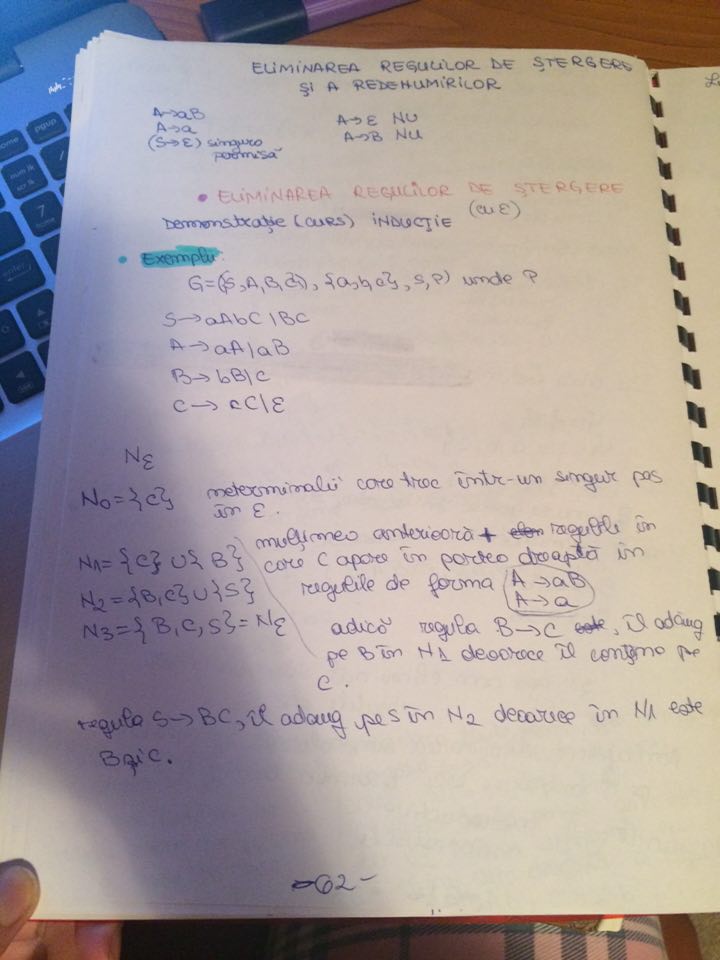 ELIMINAREA REGULILOR DE ȘTERGERE
ȘI A REDENUMIRILOR
A→aB
A→a
(S→ε) singura
permisă
A→ε NU
A→B NU
• ELIMINAREA REGULILOR DE ȘTERGERE
(cu ε)
Demonstrație (curs) INDUCȚIE
• Exemplu:
G=({S,A,B,C}, {a,b,c}, S, P) unde P
S→aAbC|BC
A→aA|aB
B→bB|C
C→cC|ε
Nε
N0={C} neterminalii care trec într-un singur pas
în ε.
N1={C}∪{B} mulțimea anterioară + regulile în
care C apare în partea dreaptă în
N2={B,C}∪{S} regulile de forma A→aB
A→a
N3={B,C,S}=Nε adică regula B→C, îl adaug
pe B în N1 deoarece îl conține pe
C.
regula S→BC, îl adaug pe S în N2 deoarece în N1 este
B și C.
-62-